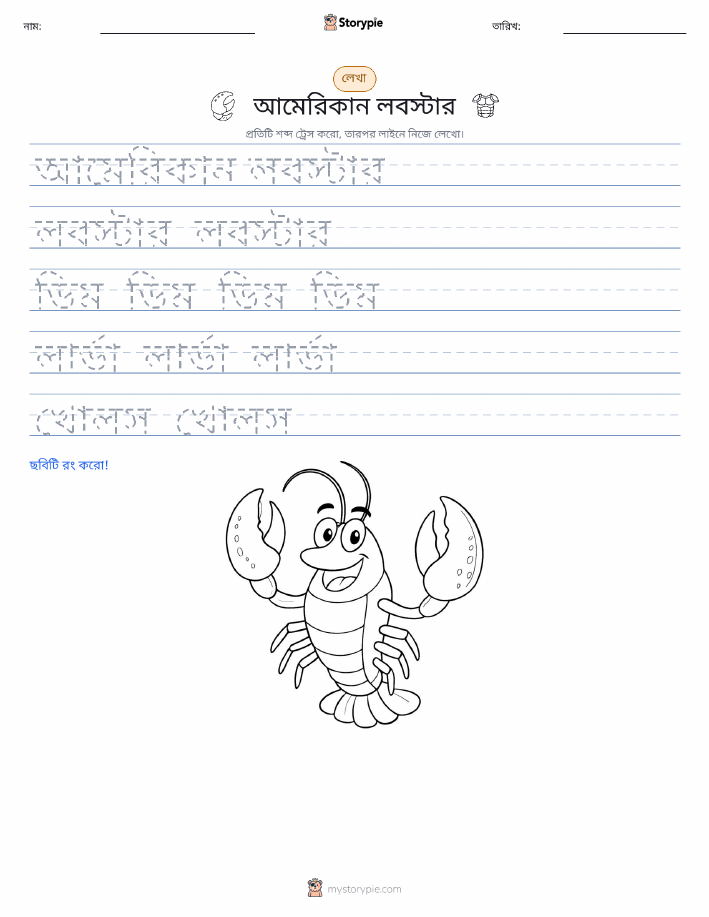 নাম:
Storypie
তারিখ:
লেখা
আমেরিকান লবস্টার
প্রতিটি শব্দ ট্রেস করো, তারপর লাইনে নিজে লেখো।
আমেরিকান লবস্টার
লবস্টার লবস্টার
ডিম ডিম ডিম ডিম
লার্ভা লার্ভা লার্ভা
খোলস খোলস
ছবিটি রং করো!
mystorypie.com